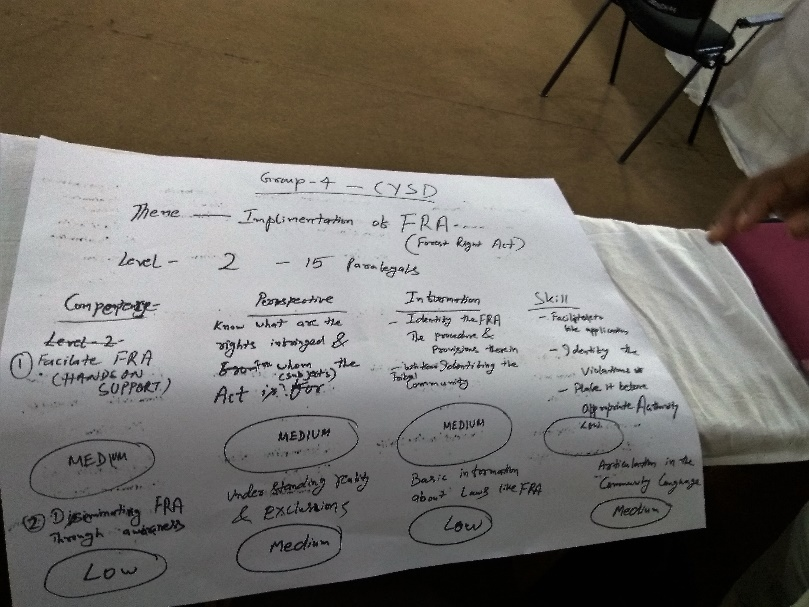 Group-4 - CYSD
Theme — Implimentation of FRA
(Forest Right Act)
Level - 2 - 15 Paralegals
Competency
Level-2
① Facilate FRA
(HANDS ON
SUPPORT)
MEDIUM
② Diseminating FRA
Through awareness
LOW
Perspective
Know what are the
rights infringed &
whom the
(subjects)
Act is for
MEDIUM
Understanding reality
& EXCLUSIONS
Medium
Information
- Identity the FRA
The procedure &
Provisions therein
- Identifing the
Tribal
Community
MEDIUM
Basic information
about Laws like FRA
Low
Skill
- application
- Identity the
Violations
- Place it before
appropriate Authority
LOW
Articulation in the
Community Language
Medium